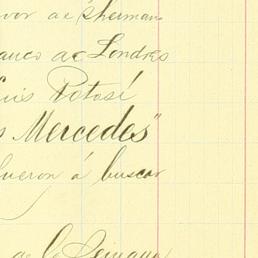 vor de Sherman
anco de Londres
uis Potosí
s Mercedes"
ueron á buscar
de la Semana